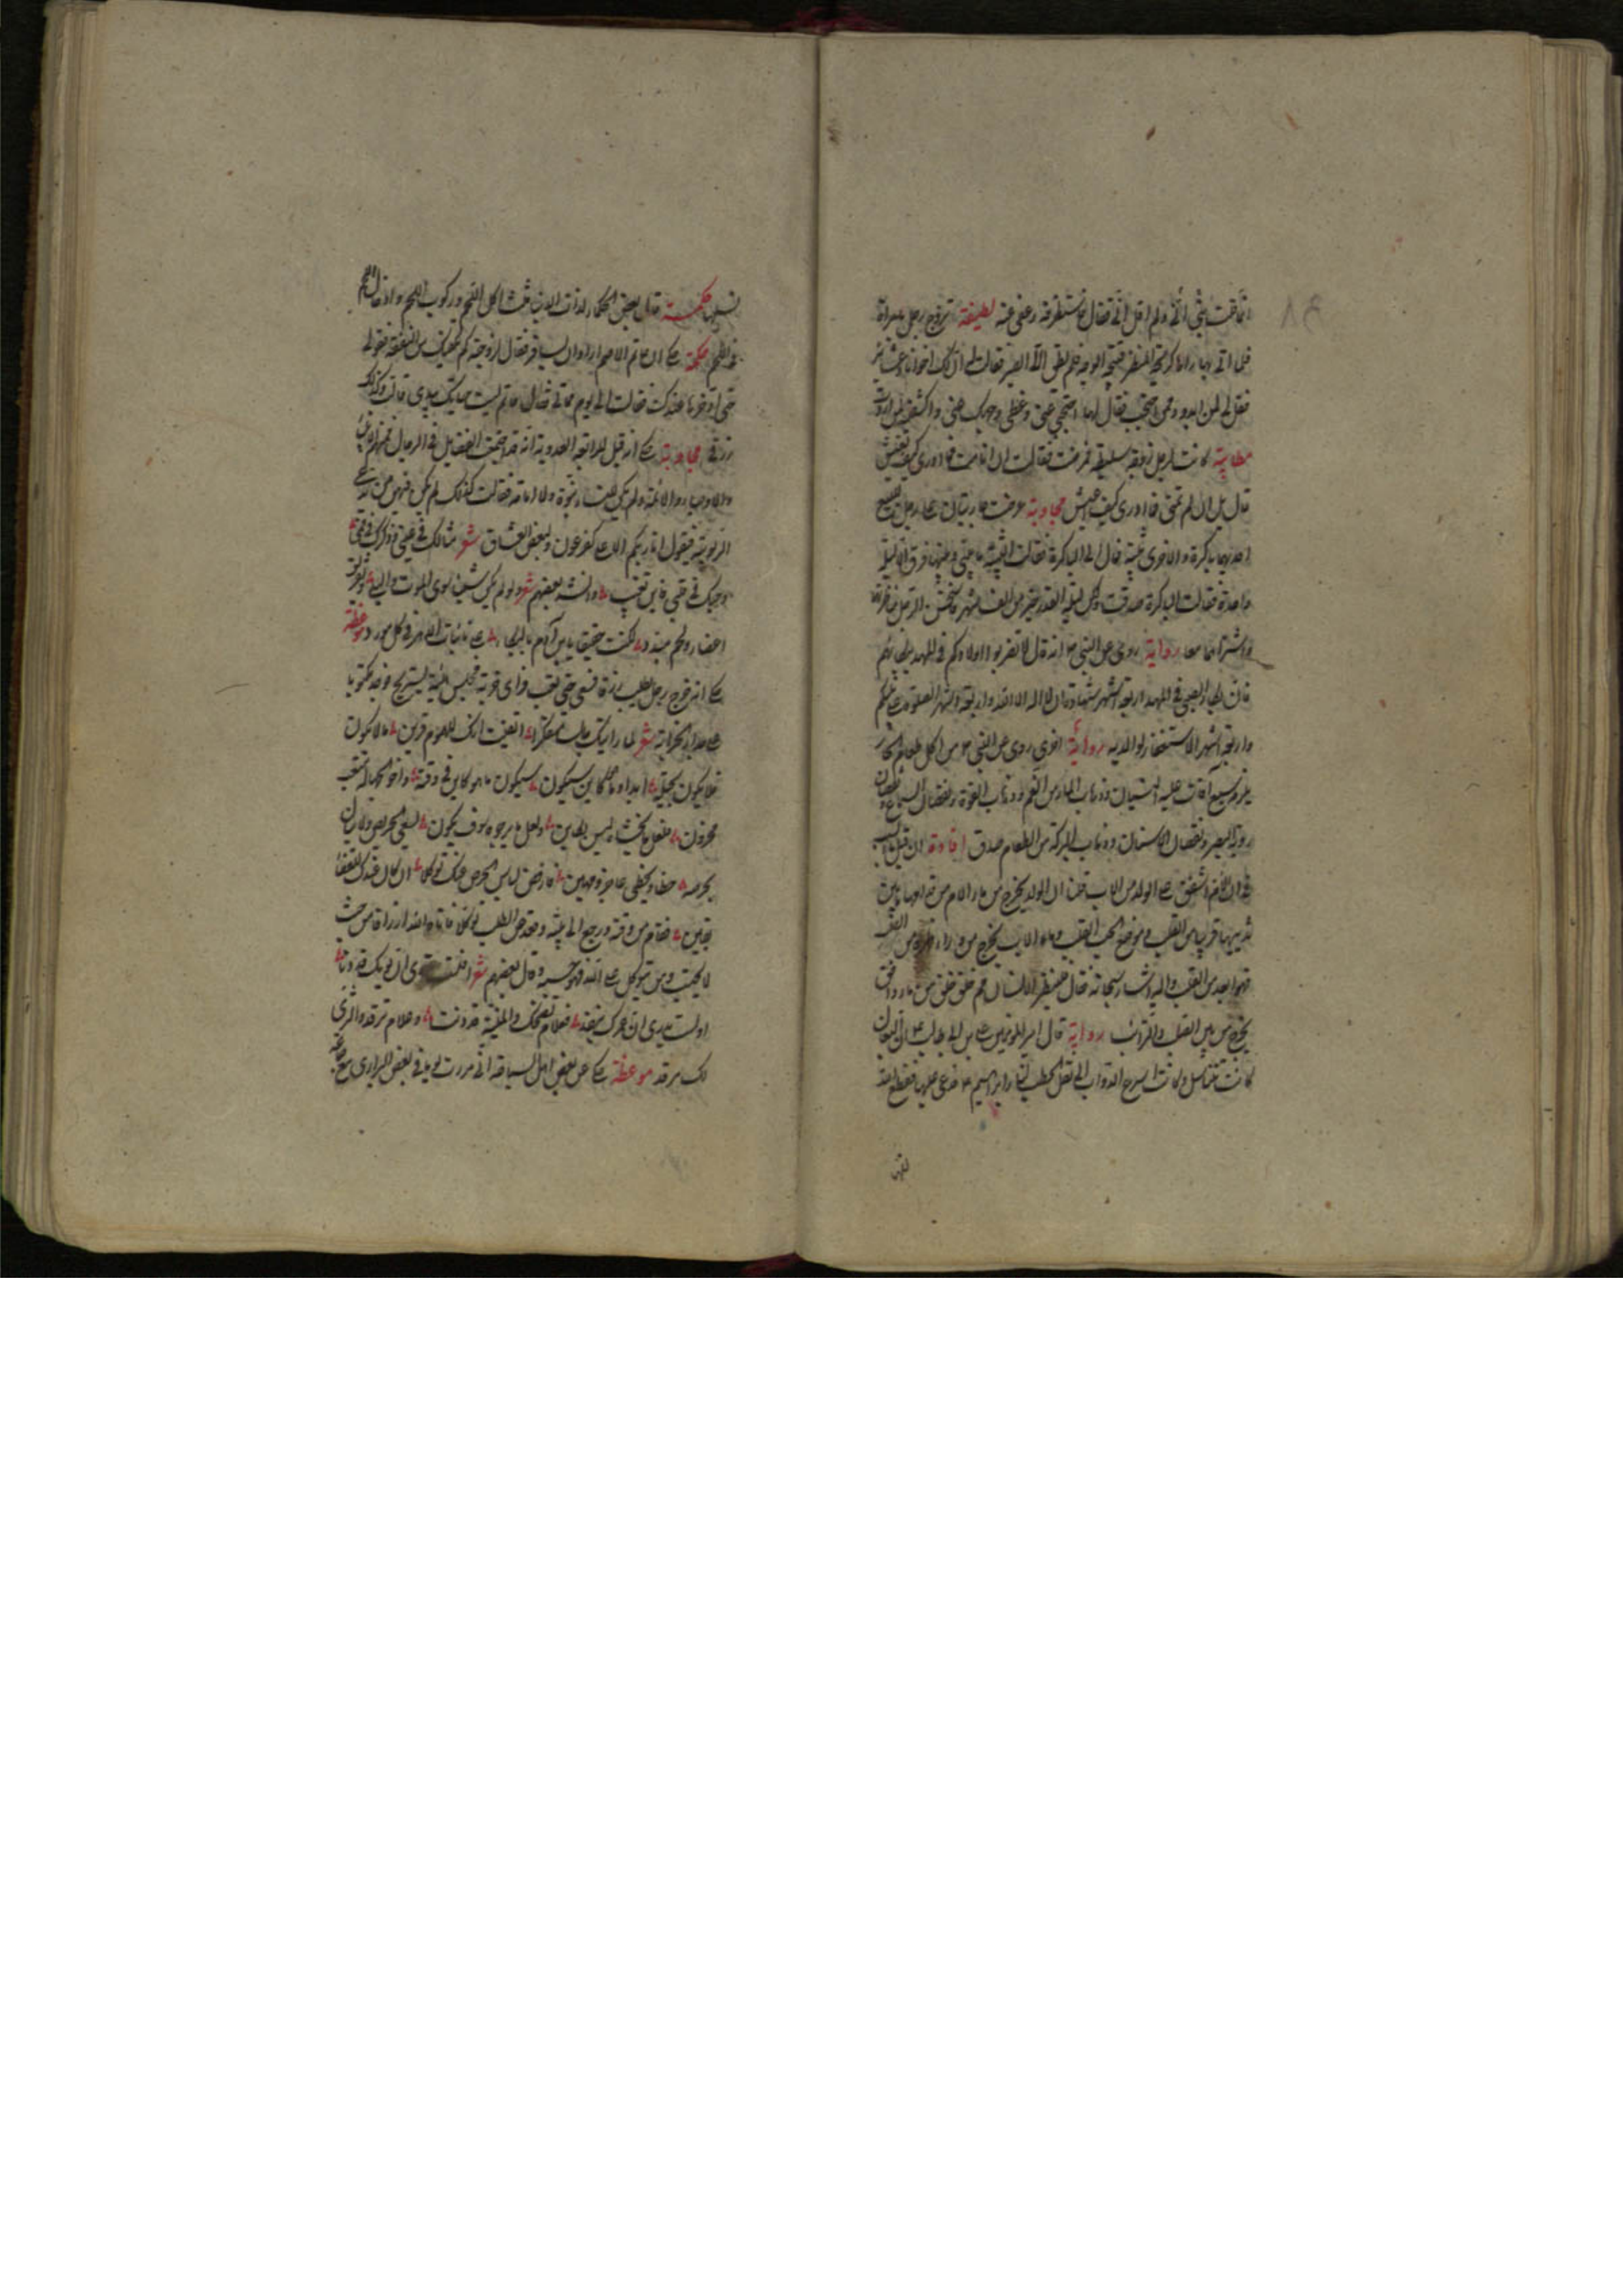 انما قلت بشئ انى ولم اقل انى فقال فاستظرفه وعفى عنه لطيفة تزوج رجل بامرأة
فلما اتى بها رآها كريهة المنظر قبيحة الوجه فلم يطق الا الصبر فقالت له ان لك اخوانا وعشائر
فقل لى لمن ابدو وممن احتجب فقال لها احتجبى عنى وغطى وجهك عنى واكشفى لمن اردت
مطايبة كانت لرجل زوجة سليطة فمرضت فقالت ان انا مت فما ادرى كيف تعيش
قال بل ان لم تمتى فما ادرى كيف اعيش مجاوبة عرضت جاريتان على رجل
احديهما باكرة والاخرى ثيبة فمال الى الباكرة فقالت الثيبة ما بينى وبينها فرق الا ليلة
واحدة فقالت الباكرة صدقت ولكن ليلة القدر خير من الف شهر فاستحسن الرجل مناظرتهما
واشتراهما معا رواية روى عن النبى انه قال لا تضربوا اولادكم فى المهد ببكائهم
فان بكاء الصبى فى المهد اربعة اشهر شهادة ان لا اله الا الله واربعة اشهر الصلوة على نبيكم
واربعة اشهر الاستغفار لوالديه رواية اخرى روى عن النبى من اكل طعام الحار
يلزم سبع آفات عليه النسيان وذهاب الماء من الفم وذهاب القوة ونقصان السماع ونقصان
روية البصر ونقصان الاسنان وذهاب البركة من الطعام صدق افادة ان قيل ما السبب
فى ان الام اشفق على الولد من الاب قلنا ان الولد يخرج من ماء الام من قدامها من بين
ثدييها قريبا من القلب وموضع الحب القلب وماء الاب يخرج من وراء ظهره من الصلب
فهو ابعد من القلب واليه اشار سبحانه فقال فلينظر الانسان مم خلق خلق من ماء دافق
يخرج من بين الصلب والترائب رواية قال امير المؤمنين على بن ابى طالب ان البغال
كانت تتناسل وكانت اسرع الدواب الى نقل الحطب لنار ابراهيم فدعى عليها فقطع الله
نسلها
نسلها حكمة قال بعض الحكماء لذات الدنيا ثلث اكل اللحم وركوب اللحم وادخال اللحم
فى اللحم حكمة حكى ان حاتم الاصم اراد ان يسافر فقال لزوجته كم يكفيك من النفقة فقولى
حتى اوفرها عندك فقالت الى يوم مماتى فقال حاتم ليست حياتك بيدى قالت وكذلك
رزقى مجاوبة حكى انه قيل لرابعة العدوية انه قد اجتمعت الفضايل فى الرجال فمنهم الانبياء
والاوصياء والائمة ولم تكن للنساء نبوة ولا امامة فقالت كذلك لم يكن فيهن من تدعى
الربوبية فيقول انا ربكم الاعلى كفرعون ولبعض العشاق شعر مثالك فى عينى وذكرك فى فمى
وحبك فى قلبى فاين تغيب وانشد بعضهم شعر ولو لم يكن شيئا سوى الموت والبلى وتفريق
اعضاء ولحم مبدد لكنت حقيقا يابن آدم بالبكاء على نائبات الدهر فى كل مورد موعظة
حكى انه خرج رجل لطلب رزقه فسعى حتى تعب فرأى خربة فجلس فيه ليستريح فوجد مكتوبا
على جدار الخرابة شعر لما رايتك جالسا متفكرا ايقنت انك للهموم قرين ما لا يكون
فلا يكون بحيلة ابدا وما هو كاين سيكون سيكون ما هو كاين فى وقته واخو الجهالة متعب
محزون فلعل ما تخشاه ليس بكاين ولعل ما ترجوه سوف يكون يسعى الحريص ولا ينال
بحرصه حظا ويحظى عاجز ومهين فارفض لباس الحرص عنك توكلا ان كان عندك للقضاء
يقين فقام من وقته ورجع الى بيته وقعد عن الطلب توكلا فاتاه الله ارزاقه من حيث
لا يحتسب ومن يتوكل على الله فهو حسبه وقال بعضهم شعر
او لست تدرى ان عمرك ينفد فعلام تضحك والمنية قد دنت وعلام ترقد والثرى
لك مرقد موعظة حكى عن بعض اهل السياحة انى مررت فى بعض البرارى